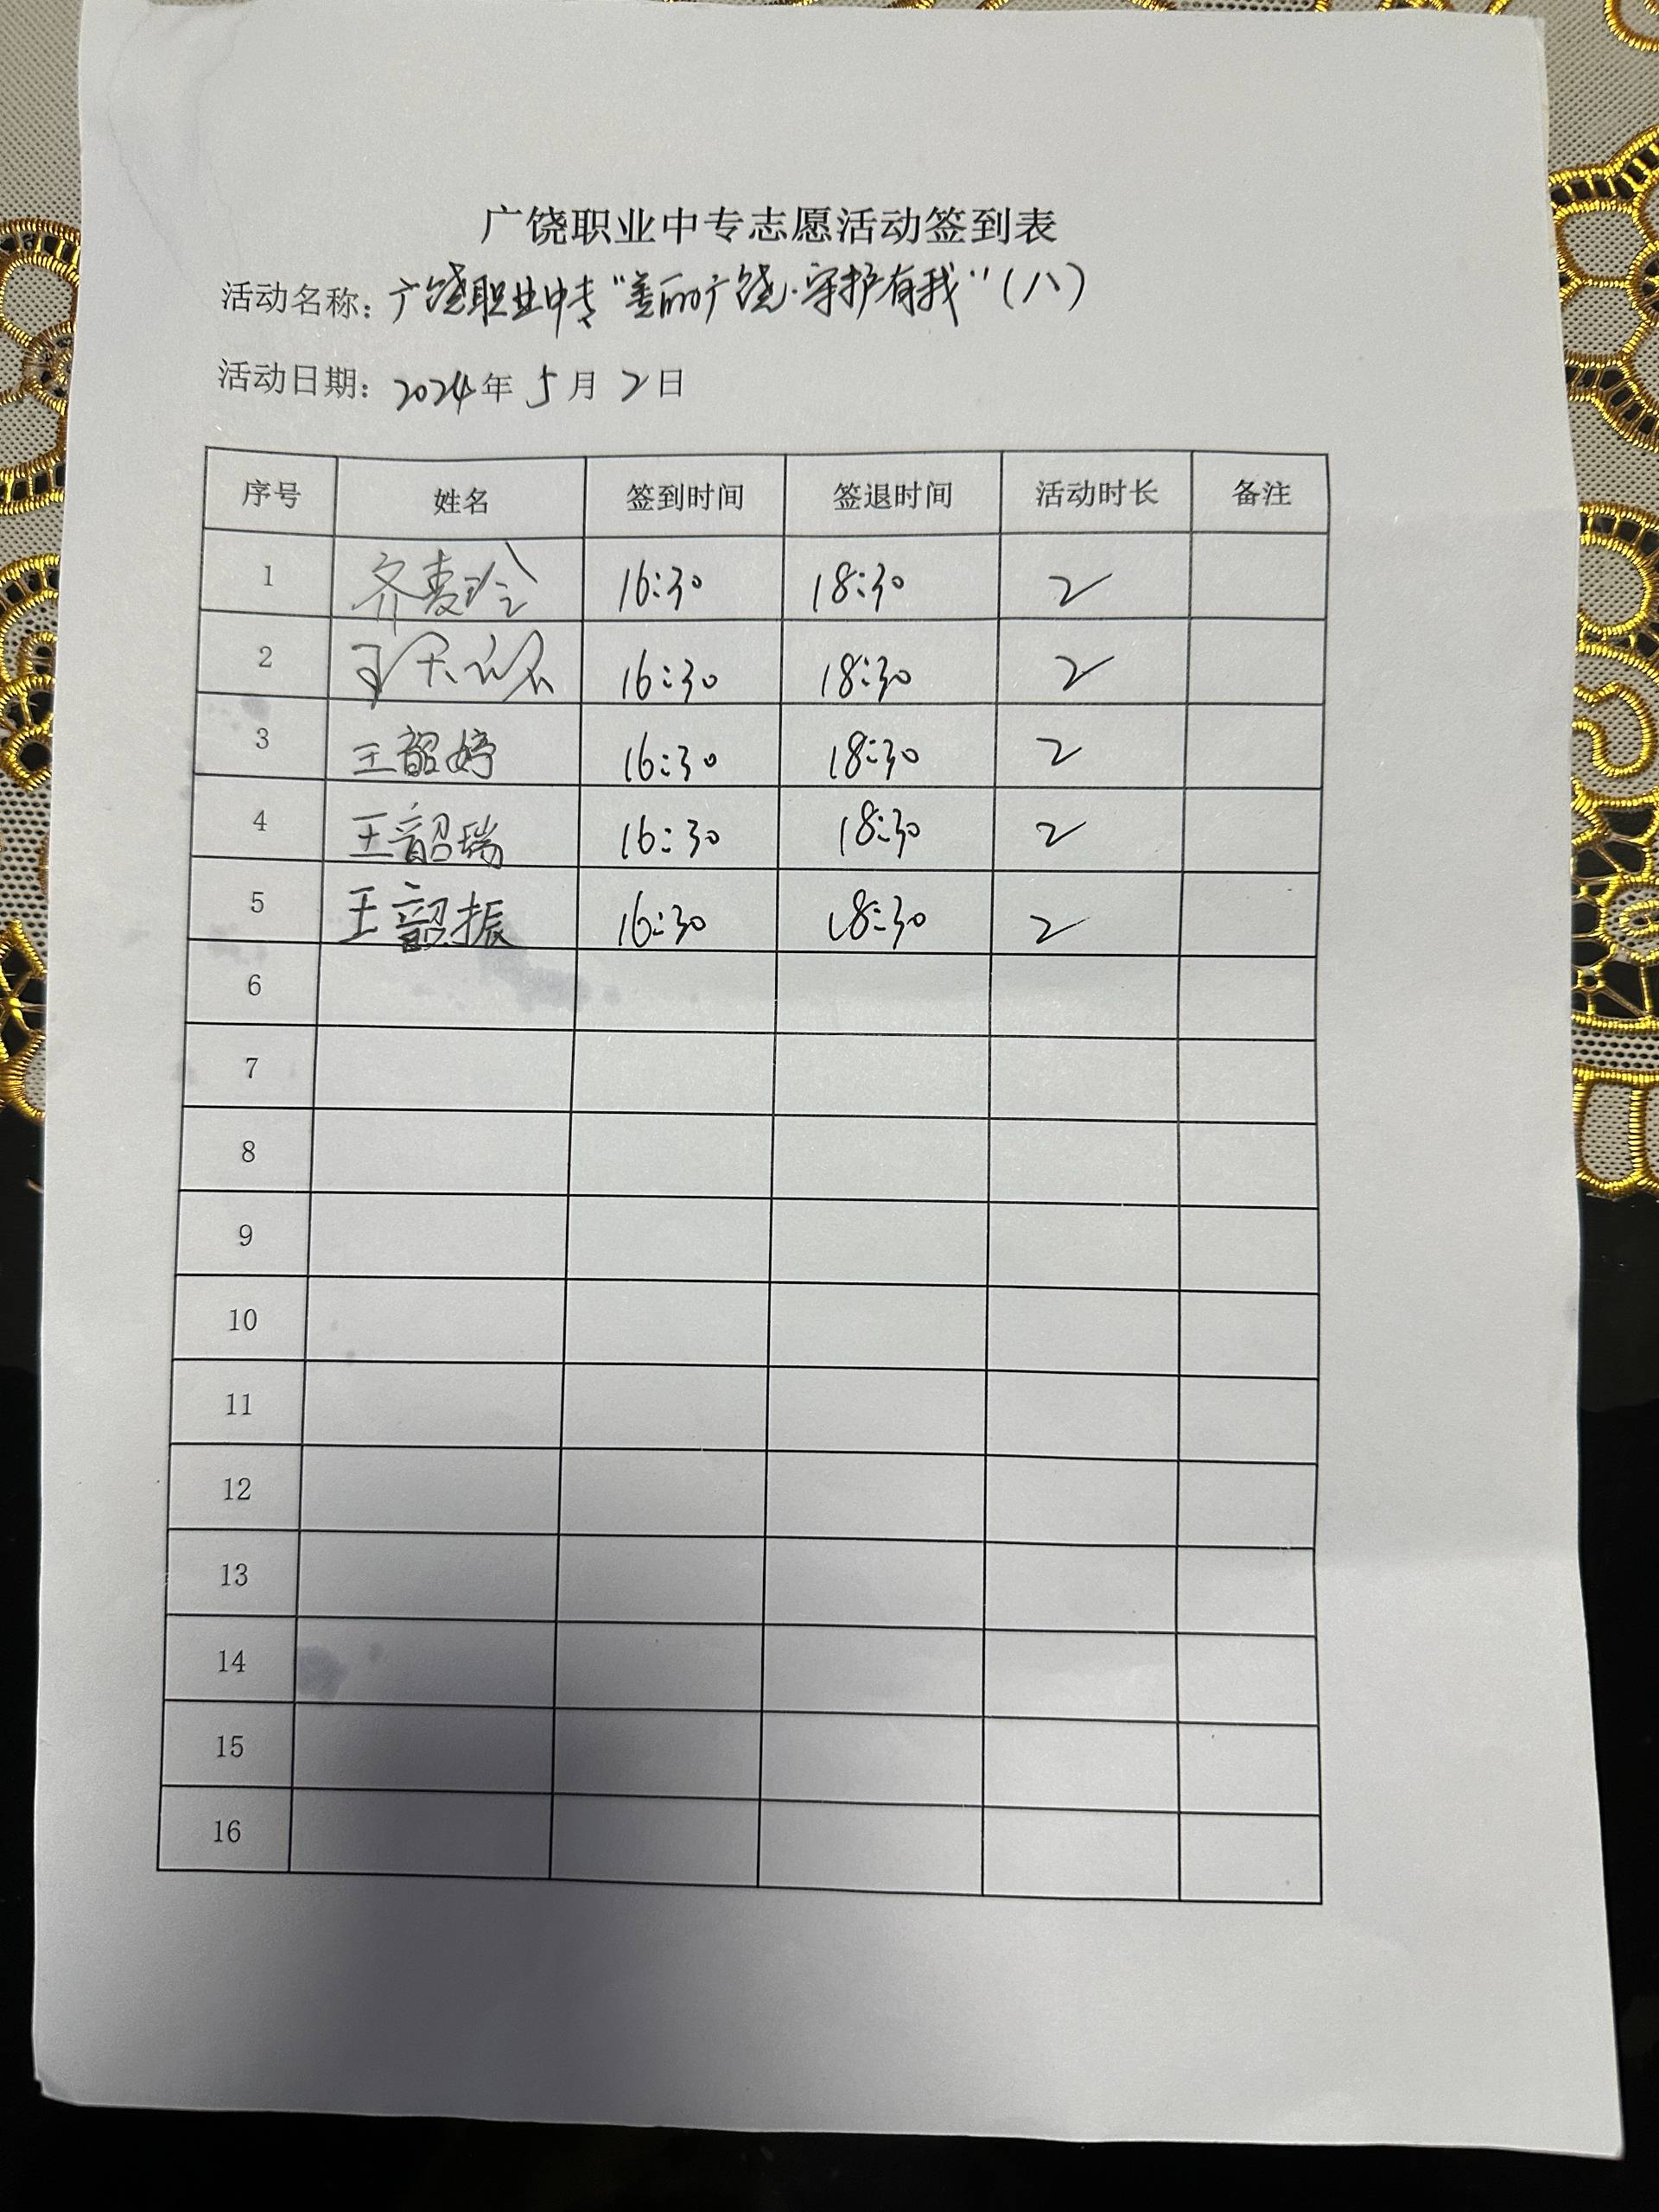 广饶职业中专志愿活动签到表
活动名称：广饶职业中专“美丽广饶·守护有我”（八）
活动日期：2024年5月2日
序号 姓名 签到时间 签退时间 活动时长 备注
1 齐麦玲 16:30 18:30 2
2 16:30 18:30 2
3 王韶婷 16:30 18:30 2
4 王韶瑞 16:30 18:30 2
5 王韶振 16:30 18:30 2
6
7
8
9
10
11
12
13
14
15
16